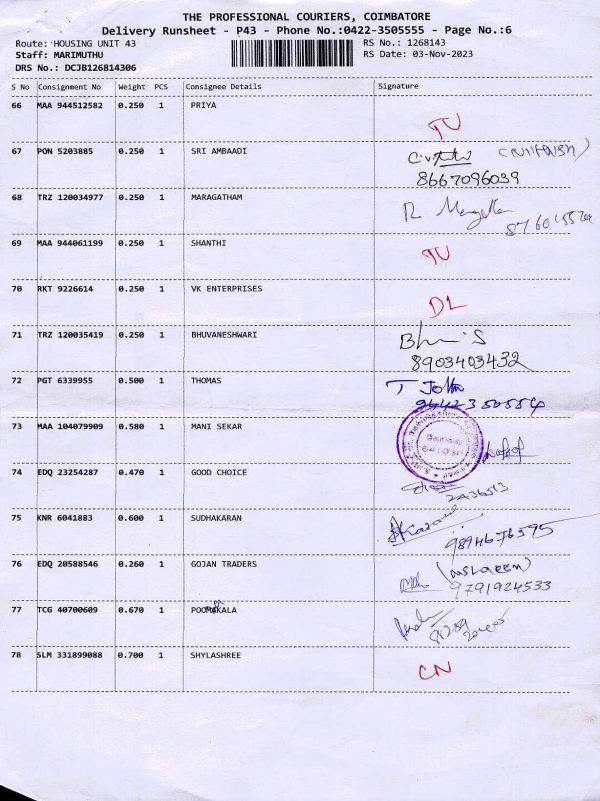 THE PROFESSIONAL COURIERS, COIMBATORE
Delivery Runsheet - P43 - Phone No.:0422-3505555 - Page No.:6
Route: HOUSING UNIT 43 RS No.: 1268143
Staff: MARIMUTHU RS Date: 03-Nov-2023
DRS No.: DCJB126814306
S No Consignment No Weight PCS Consignee Details Signature
66 MAA 944512582 0.250 1 PRIYA
TU
67 PON 5203885 0.250 1 SRI AMBAADI
8667096039
68 TRZ 120034977 0.250 1 MARAGATHAM
69 MAA 944061199 0.250 1 SHANTHI
TU
70 RKT 9226614 0.250 1 VK ENTERPRISES
DL
71 TRZ 120035419 0.250 1 BHUVANESHWARI
8903403432
72 PGT 6339955 0.500 1 THOMAS
T John
9442350554
73 MAA 104079909 0.580 1 MANI SEKAR
74 EDQ 23254287 0.470 1 GOOD CHOICE
75 KNR 6041883 0.600 1 SUDHAKARAN
9894676595
76 EDQ 20588546 0.260 1 GOJAN TRADERS
9791924533
77 TCG 40700609 0.670 1
78 SLM 331899088 0.700 1 SHYLASHREE
CN